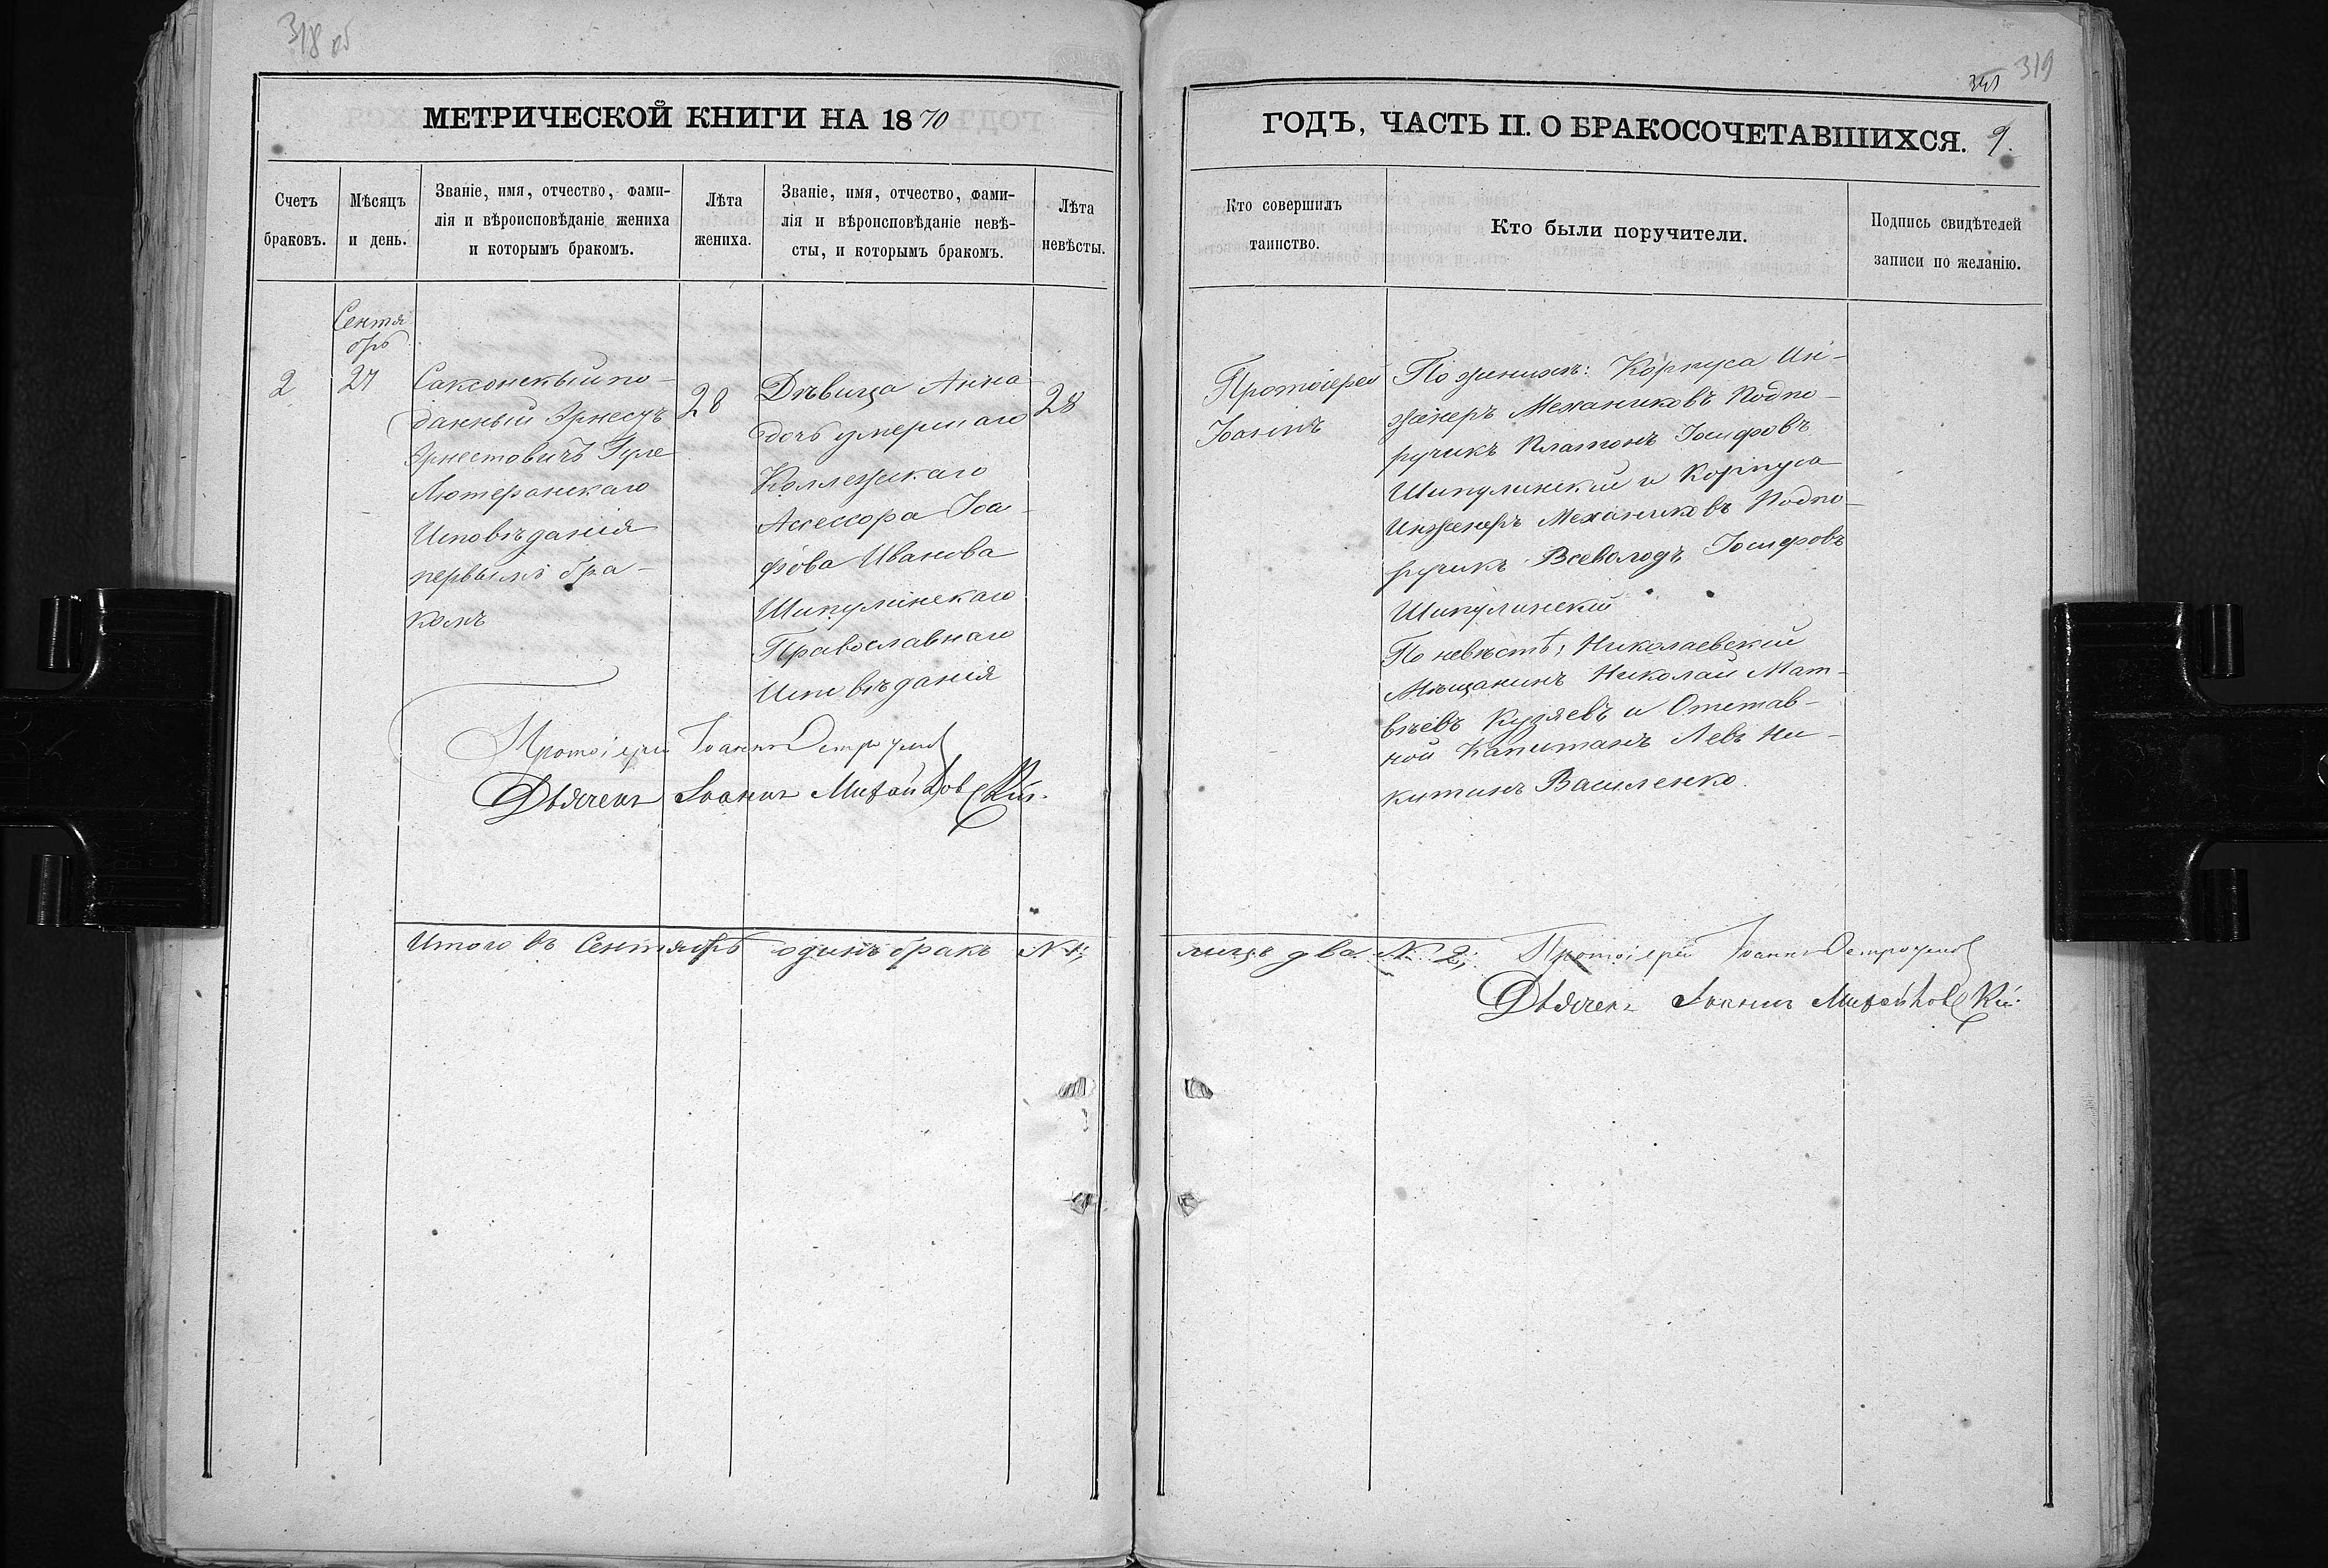 318 об
МЕТРИЧЕСКОЙ КНИГИ НА 1870
Счетъ браковъ.
Мѣсяцъ и день.
Званіе, имя, отчество, фами-
лія и вѣроисповѣданіе жениха
и которымъ бракомъ.
Лѣта жениха.
Званіе, имя, отчество, фами-
лія и вѣроисповѣданіе невѣ-
сты, и которымъ бракомъ.
Лѣта невѣсты.
Сентя
брь
2
27
Саксонскый по-
данный Эрнестъ
Эрнестовичъ
Лютеранскаго
Исповѣданія
первымъ бра-
комъ
28
Дѣвица Анна
дочь умершаго
Коллежскаго
Ассесора Іоа-
фова Иванова
Шипулинскаго
Православнаго
Исповѣданія
28
Протоіерей Іоаннъ Остроумов
Дьячекъ Іоаннъ Михайловскій.
Итого въ Сентябрѣ одинъ бракъ № 1;
319
ГОДЪ, ЧАСТЬ II. О БРАКОСОЧЕТАВШИХСЯ. 9.
Кто совершилъ
таинство.
Кто были поручители.
Подпись свидѣтелей
записи по желанію.
Протоіерей
Іоаннъ
По женихѣ: Корпуса Ин-
женеръ Механиковъ Подпо-
ручикъ Платонъ Іосифовъ
Шипулинскій и Корпуса
Инженеръ Механиковъ Подпо-
ручикъ Всеволодъ Іосифовъ
Шипулинскій
По невѣстѣ, Николаевскій
Мѣщанинъ Николай Мат-
вѣевъ Кузяевъ и Отстав-
ной Капитанъ Левъ Ни-
китинъ Василенко.
лицъ два № 2; Протоіерей Іоаннъ Остроумов
Дьячекъ Іоаннъ Михайловскій.